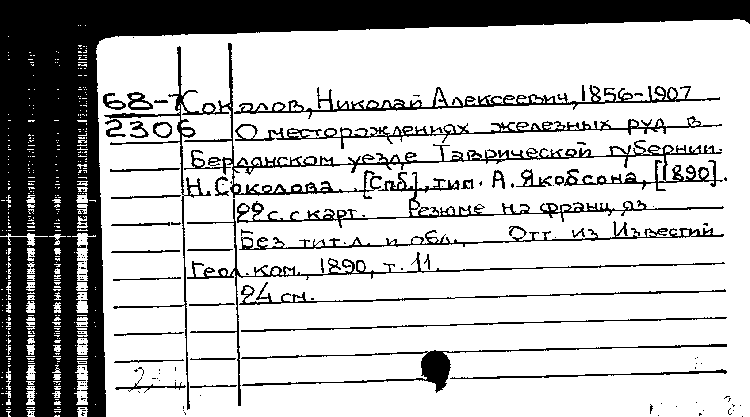 68-7 Соколов, Николай Алексеевич, 1856-1907
2306 О месторождениях железных руд в
Бердянском уезде Таврической губернии.
Н. Соколова. [Спб.], тип. А. Якобсона, [1890].
22 с. с карт. Резюме на франц. яз.
Без тит. л. и обл. Отт. из Известий
Геол. ком., 1890, т. 11.
24 см.